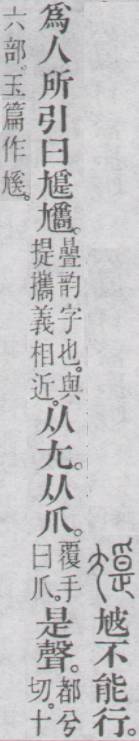 㝿不能行。
爲人所引曰
疊韵字也。與
提攜義相近。
从尢。从爪。
覆手
曰爪。
是聲。
都兮
切。十
六部。玉篇作